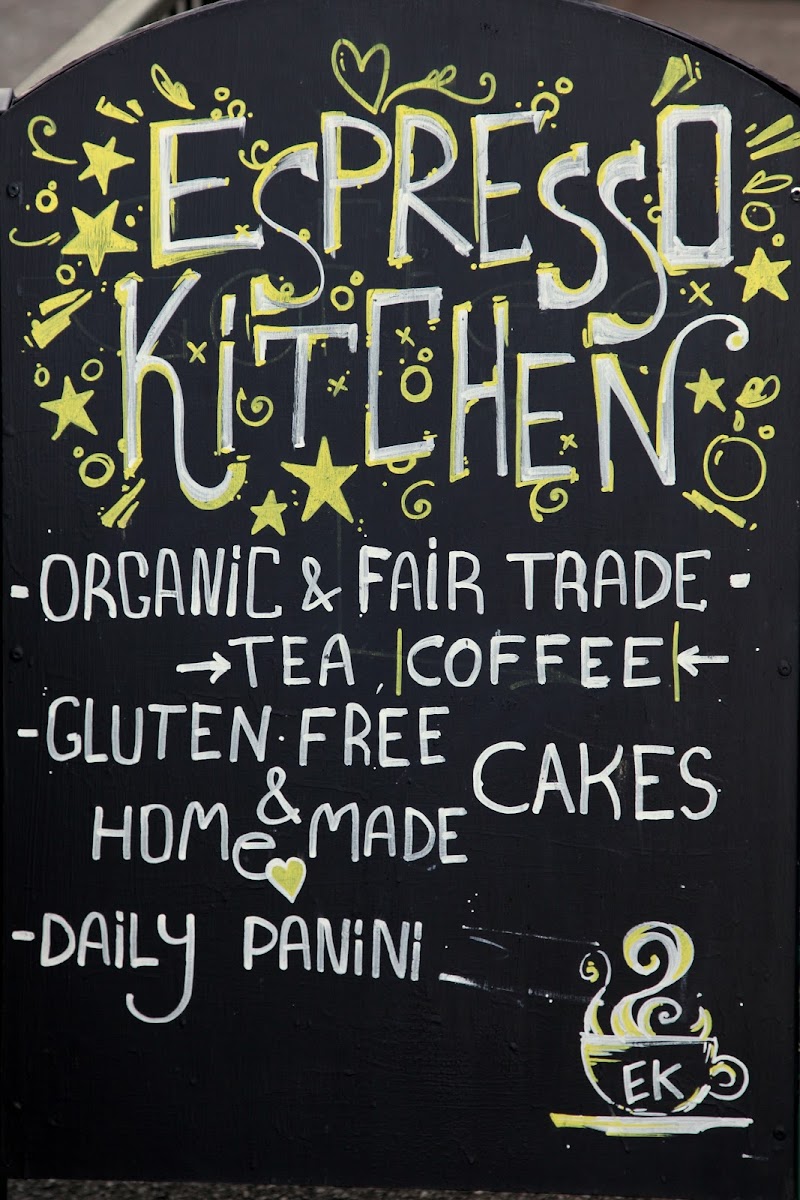 ESPRESSO
KiTCHEN
- ORGANiC & FAiR TRADE -
→ TEA, |COFFEE| ←
- GLUTEN·FREE
&
HOMe MADE
CAKES
- DAiLY PANiNi
EK